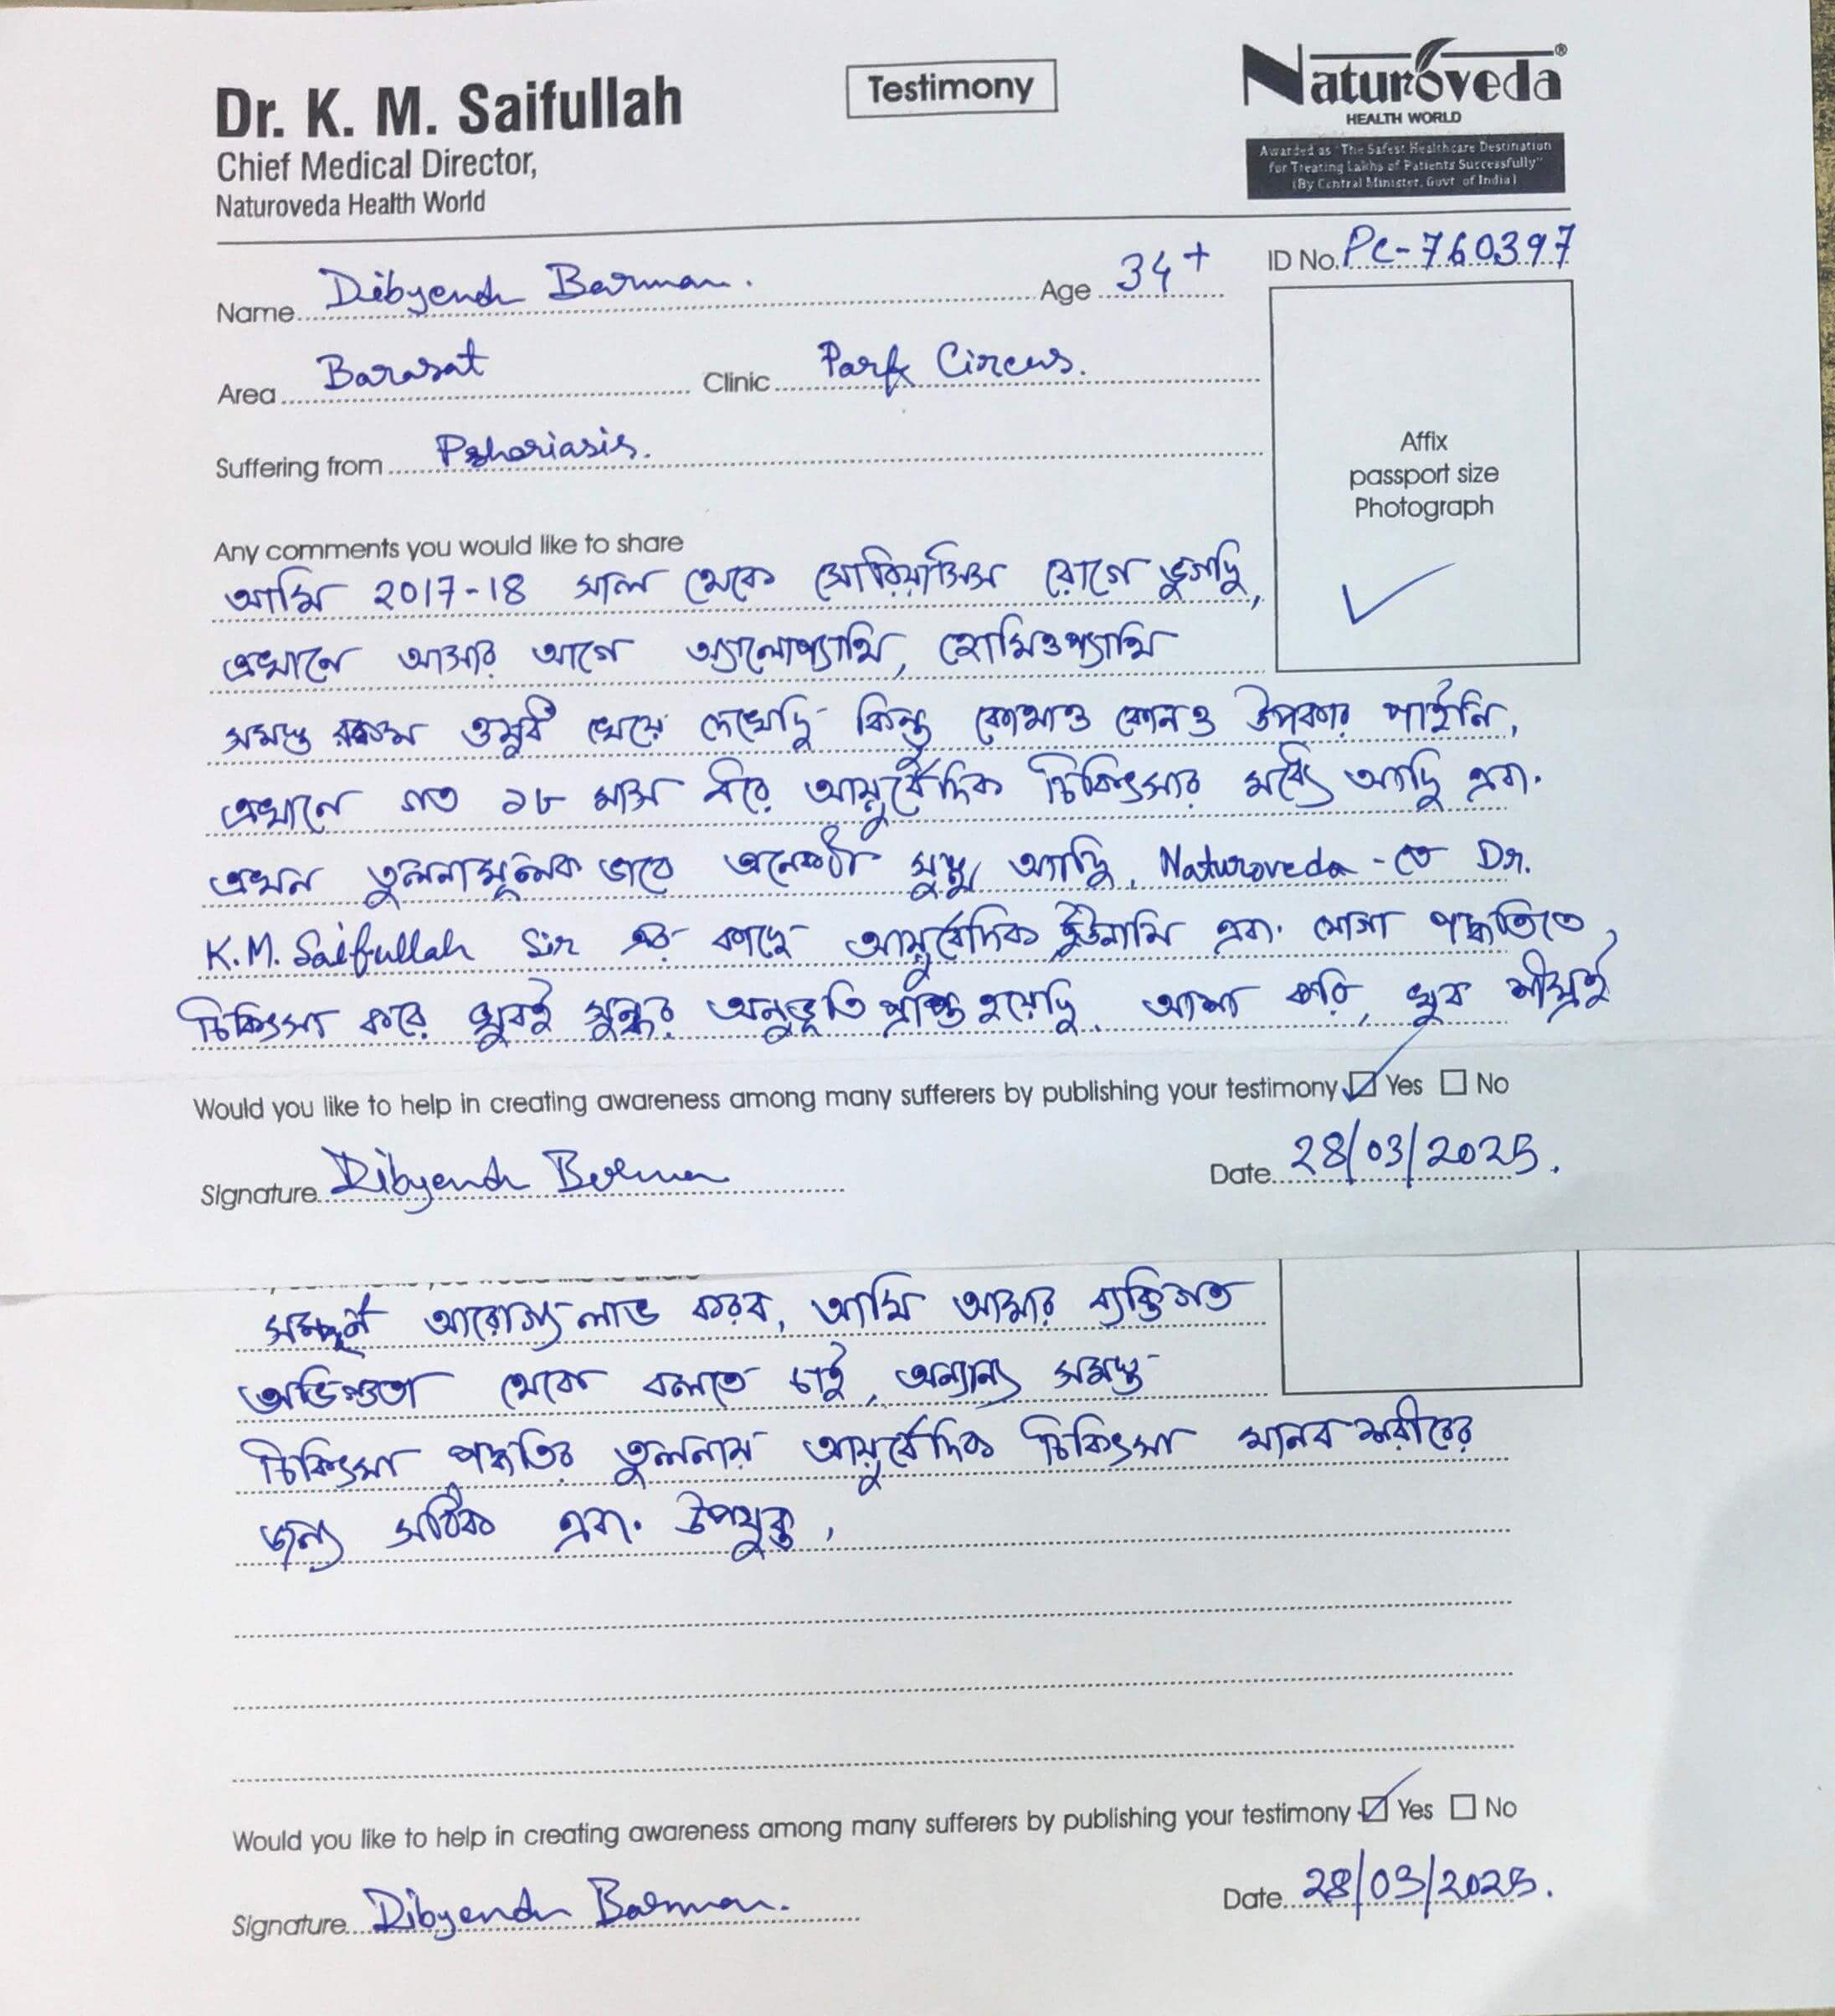 Dr. K. M. Saifullah
Chief Medical Director,
Naturoveda Health World
Testimony
Naturoveda®
HEALTH WORLD
Awarded as "The Safest Healthcare Destination
for Treating Lakhs of Patients Successfully"
(By Central Minister, Govt of India)
ID No. PC-760397
Name Dibyendu Barman. Age 34+
Area Barasat Clinic Park Circus.
Suffering from Pshoriasis.
Affix
passport size
Photograph
Any comments you would like to share
আমি 2017-18 সাল থেকে সোরিয়াসিস রোগে ভুগছি,
এখানে আসার আগে অ্যালোপ্যাথি, হোমিওপ্যাথি
সমস্ত রকম ওষুধ খেয়ে দেখেছি কিন্তু কোথাও কোনও উপকার পাইনি,
এখানে গত ১৮ মাস ধরে আয়ুর্বেদিক চিকিৎসার মধ্যে আছি এবং
এখন তুলনামূলক ভাবে অনেকটা সুস্থ আছি, Naturoveda-তে Dr.
K.M. Saifullah Sir এর কাছে আয়ুর্বেদিক ইউনানি এবং যোগা পদ্ধতিতে,
চিকিৎসা করে খুবই সুন্দর অনুভূতি প্রাপ্ত হয়েছি, আশা করি, খুব শীঘ্রই
Would you like to help in creating awareness among many sufferers by publishing your testimony Yes No
Signature Dibyendu Barman Date 28/03/2025.
সম্পূর্ণ আরোগ্য লাভ করব, আমি আমার ব্যক্তিগত
অভিজ্ঞতা থেকে বলতে চাই, অন্যান্য সমস্ত
চিকিৎসা পদ্ধতির তুলনায় আয়ুর্বেদিক চিকিৎসা মানব শরীরের
জন্য সঠিক এবং উপযুক্ত,
Would you like to help in creating awareness among many sufferers by publishing your testimony Yes No
Signature Dibyendu Barman. Date 28/03/2025.